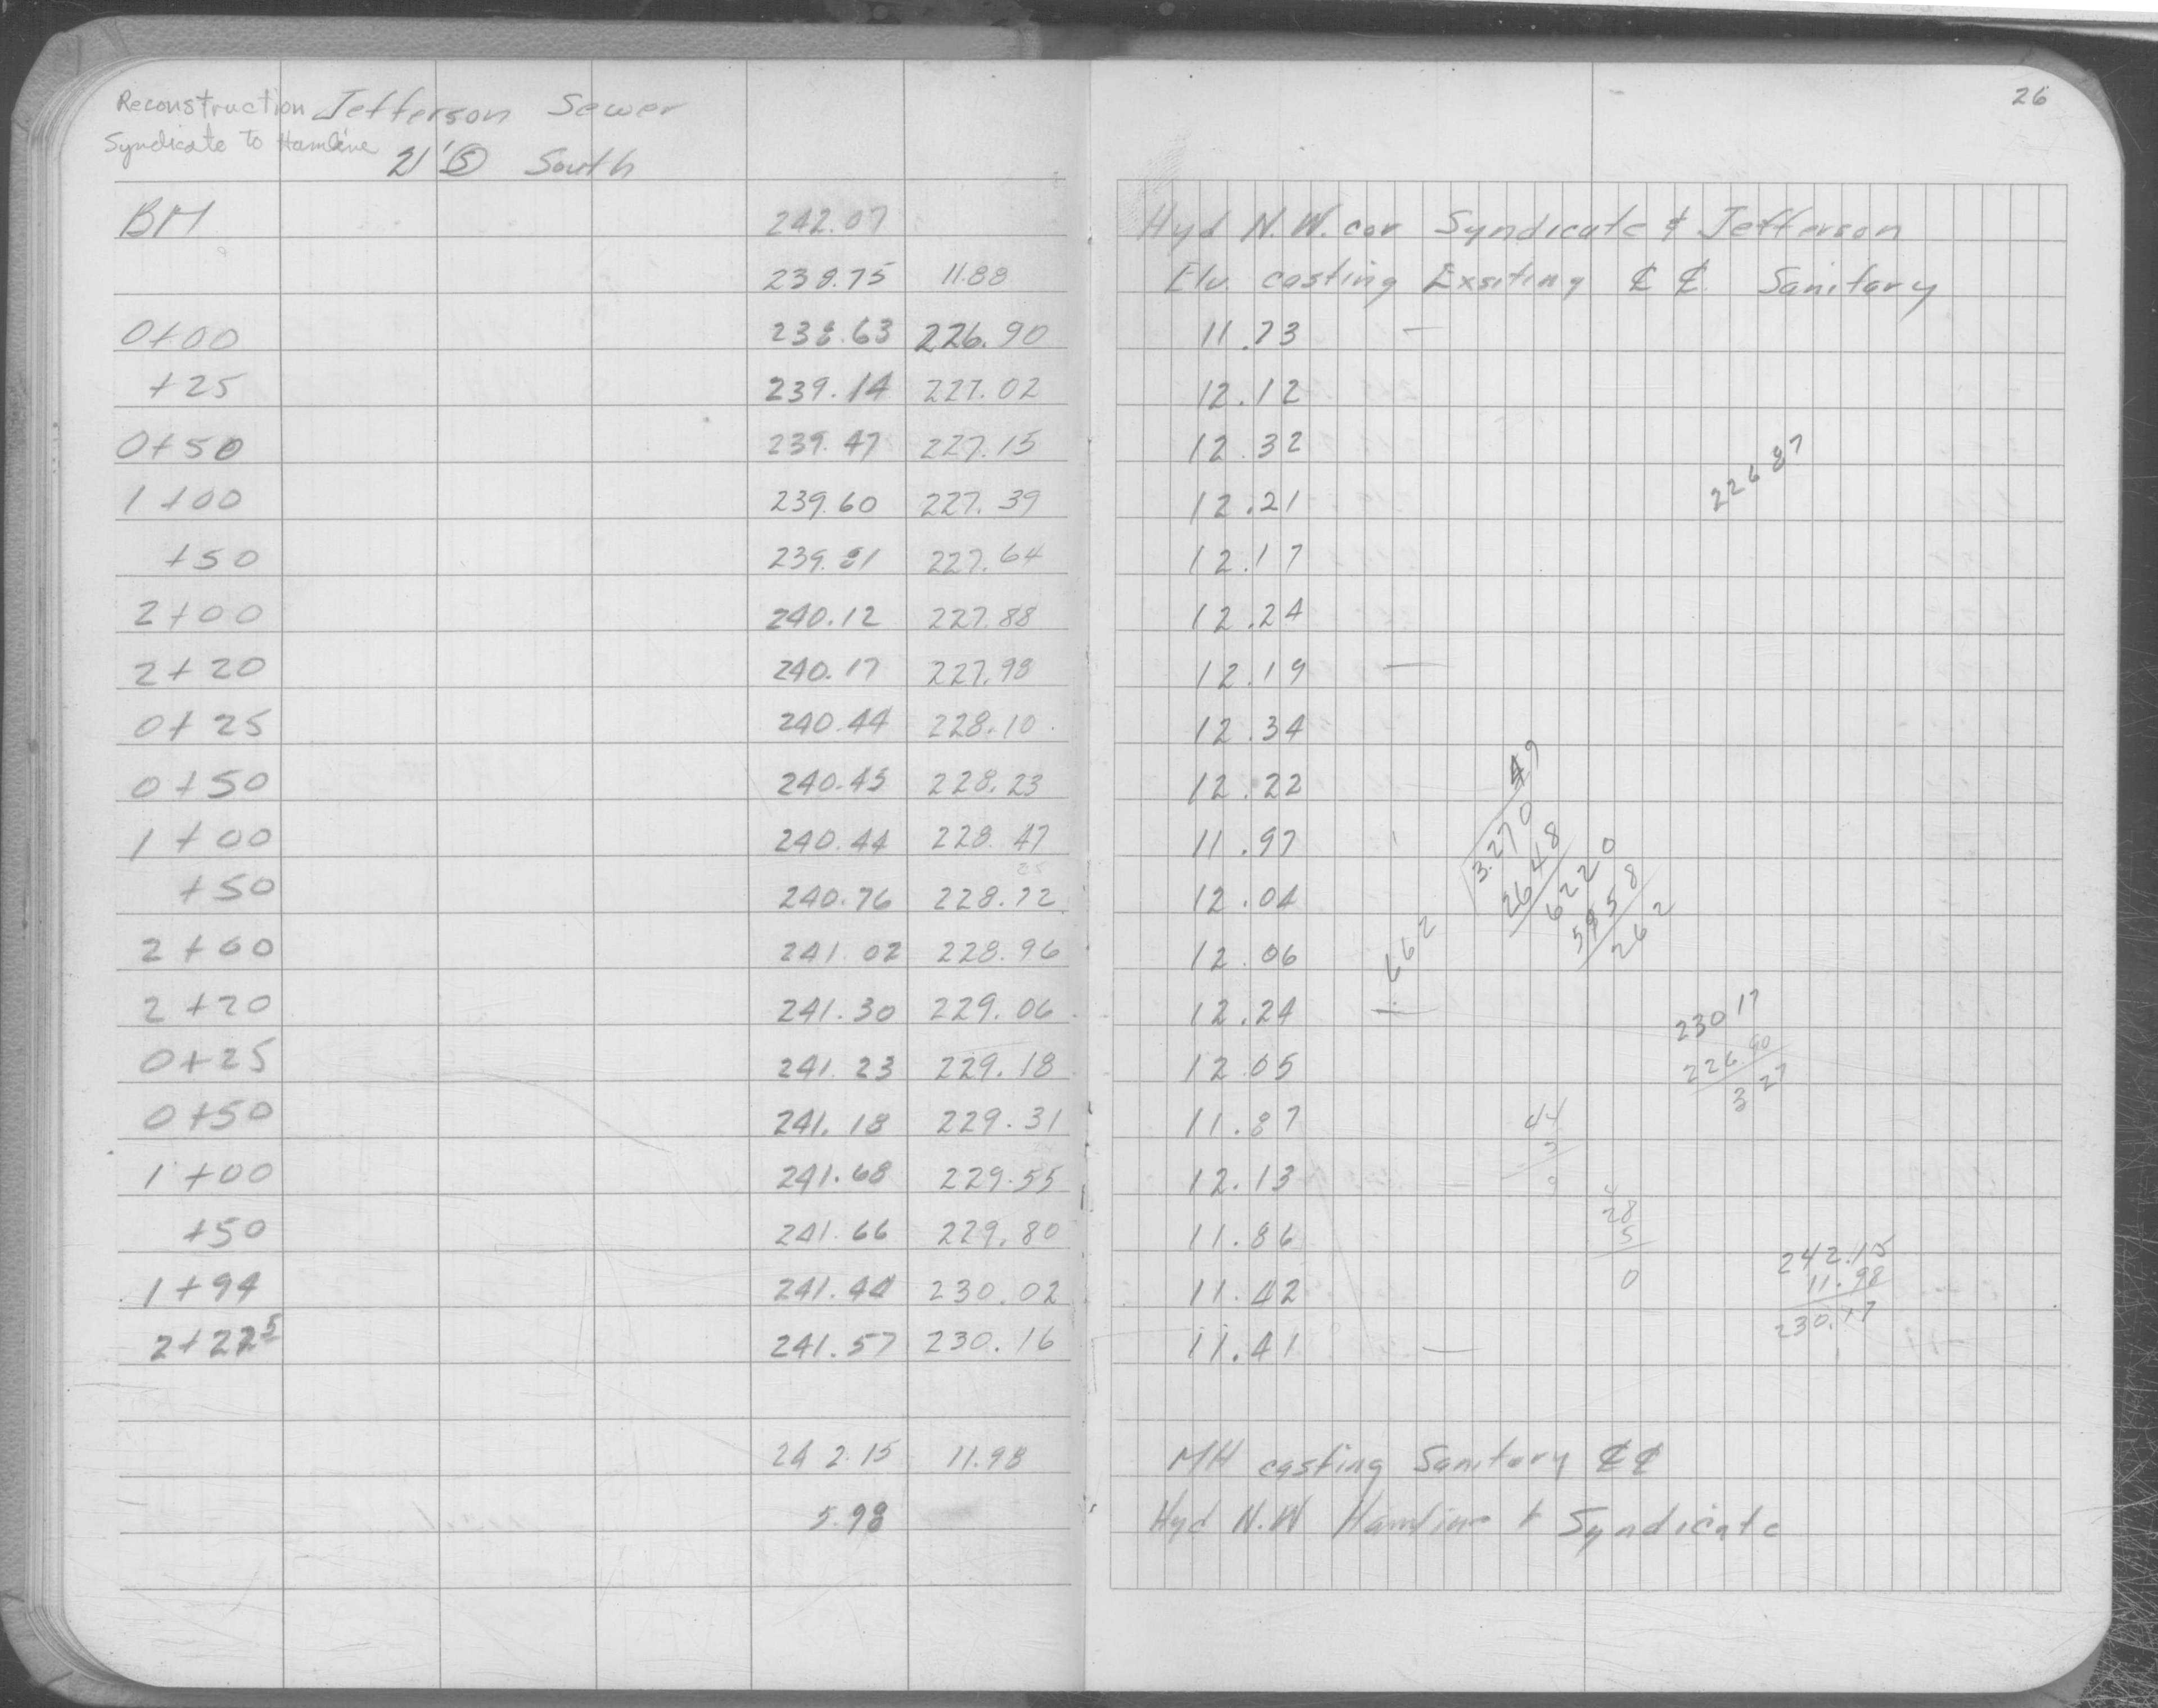 26
Reconstruction Jefferson Sewer
Syndicate to Hamline
21' Ⓢ South
BM 242.07 Hyd N.W. cor Syndicate & Jefferson
238.75 11.88 Elv. casting Exsiting ℄ ℄ Sanitary
0+00 238.63 226.90 11.73 —
+25 239.14 227.02 12.12
0+50 239.47 227.15 12.32
1+00 239.60 227.39 12.21
+50 239.81 227.64 12.17
2+00 240.12 227.88 12.24
2+20 240.17 227.98 12.19 —
0+25 240.44 228.10 12.34
0+50 240.45 228.23 12.22
1+00 240.44 228.47 11.97
+50 240.76 228.72 12.04
2+00 241.02 228.96 12.06
2+20 241.30 229.06 12.24 —
0+25 241.23 229.18 12.05
0+50 241.18 229.31 11.87
1+00 241.68 229.55 12.13
+50 241.66 229.80 11.86
1+94 241.44 230.02 11.42
2+22⁵ 241.57 230.16 11.41 —
242.15 11.98 MH casting Sanitary ℄ ℄
5.98 Hyd N.W Hamline & Syndicate
226 87
49
662 3.270
2648
6220
5958
262
230 17
226 90
3 27
44
3
9
28
5
0
242.15
11.98
230.17